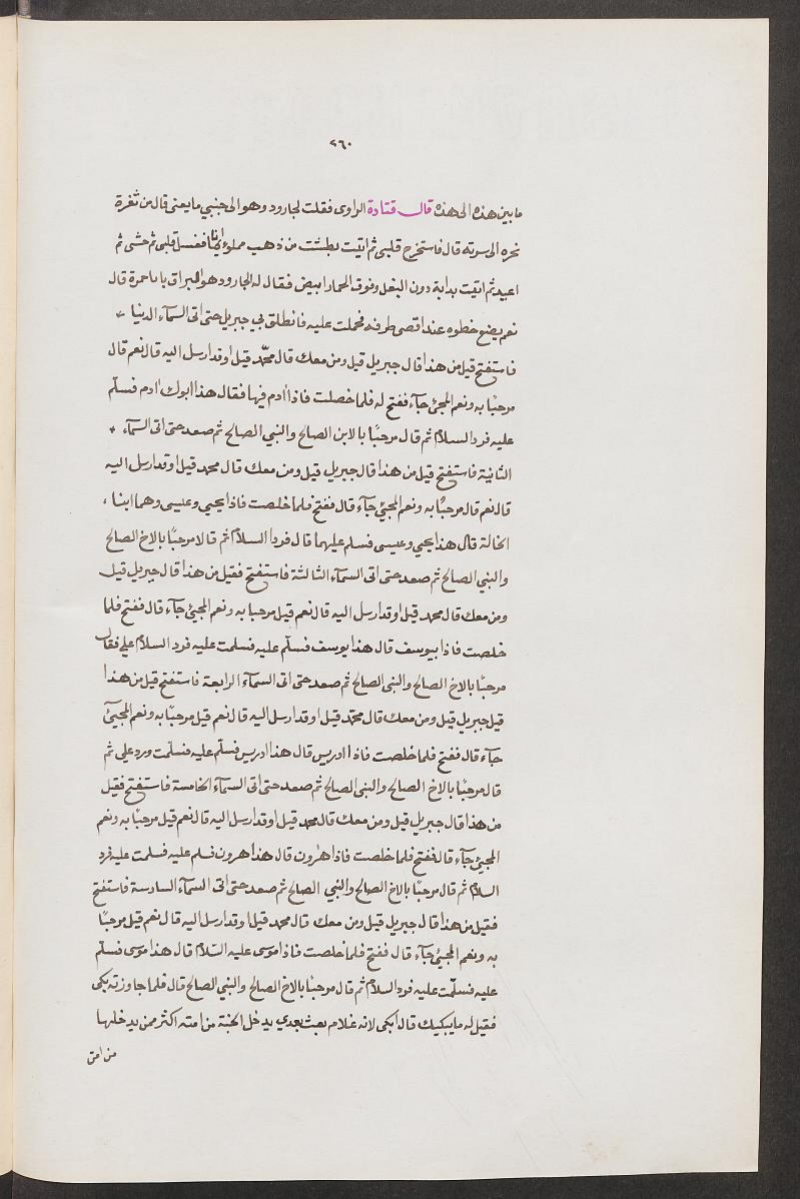 ٢٦٠
ما بين هذه الى هذه قال قتادة الراوى فقلت لجارود وهو الى جنبي ما يعنى قال من ثغرة
نحره الى سرته قال فاستخرج قلبى ثم اتيت بطشت من ذهب مملوء ايمانا ففسل قلبى ثم حشى ثم
اعيد ثم اتيت بدابة دون البغل وفوق الحمار ابيض فقال له الجارود هو البراق يا ابا حمزة قال
نعم يضع خطوه عند اقصى طرفه فحملت عليه فانطلق بي جبريل حتى اتى السمآء الدنيا
فاستفتح قيل من هذا قال جبريل قيل ومن معك قال محمّد قيل اوقد ارسل اليه قال نعم قال
مرحبًا به ونعم المجئ جآء ففتح له فلما خصلت فاذا أدم فيها فقال هذا ابوك أدم فسلّم
عليه فرد السلام ثم قال مرحبًا بالابن الصالح والنبي الصالح ثم صعد حتى اتى السمآء
الثانية فاستفتح قيل من هذا قال جبريل قيل ومن معك قال محمد قيل اوقد ارسل اليه
قال نعم قال مرحبًا به ونعم المجيئ جآء قال ففتح فلما خلصت فاذا يحيى وعيسى وهما ابنا
الخالة قال هذا يحيى وعيسى فسلم عليهما قال فردا السلام ثم قالا مرحبًا بالاخ الصالح
والنبي الصالح ثم صعد حتى اتى السمآء الثالثة فاستفتح فقيل من هذا قال جبريل قيل
ومن معك قال محمد قيل اوقد ارسل اليه قال نعم قيل مرحبا به ونعم المجئ جآء قال ففتح فلما
خلصت فاذا بيوسف قال هذا يوسف فسلّم عليه فسلمت عليه فرد السلام على فقال
مرحبًا بالاخ الصالح والنبى الصالح ثم صعد حتى اتى السمآء الرابعة فاستفتح قيل من هذا
قيل جبريل قيل ومن معك قال محمّد قيل اوقد ارسل اليه قال نعم قيل مرحبًا به ونعم المجيئ
جآء قال ففتح فلما خلصت فاذا ادريس قال هذا ادريس فسلّم عليه فسلّمت ورد على ثم
قال مرحبًا بالاخ الصالح والنبى الصالح ثم صعد حتى اتى السمآء الخامسة فاستفتح فقيل
من هذا قال جبريل قيل ومن معك قال محمد قيل اوقد ارسل اليه قال نعم قيل مرحبًا به ونعم
المجيئ جآء قال ففتح فلما خلصت فاذا هٰرون قال هذا هرون فسلم عليه فسلمت عليه فرد
السلام ثم قال مرحبًا بالاخ الصالح والنبي الصالح ثم صعد حتى اتى السمآء السادسة فاستفتح
فقيل من هذا قال جبريل قيل ومن معك قال محمد قيل اوقد ارسل اليه قال نعم قيل مرحبًا
به ونعم المجيئ جآء قال ففتح فلما خلصت فاذا موسى عليه السّلام قال هذا موسى فسلّم
عليه فسلّمت عليه فرد السلام ثم قال مرحبًا بالاخ الصالح والنبي الصالح قال فلما جاوزته بكى
فقيل له ما يبكيك قال ابكى لانه غلام بعث بعدي يدخل الجنة من امته اكثر ممن يدخلها
من امتى